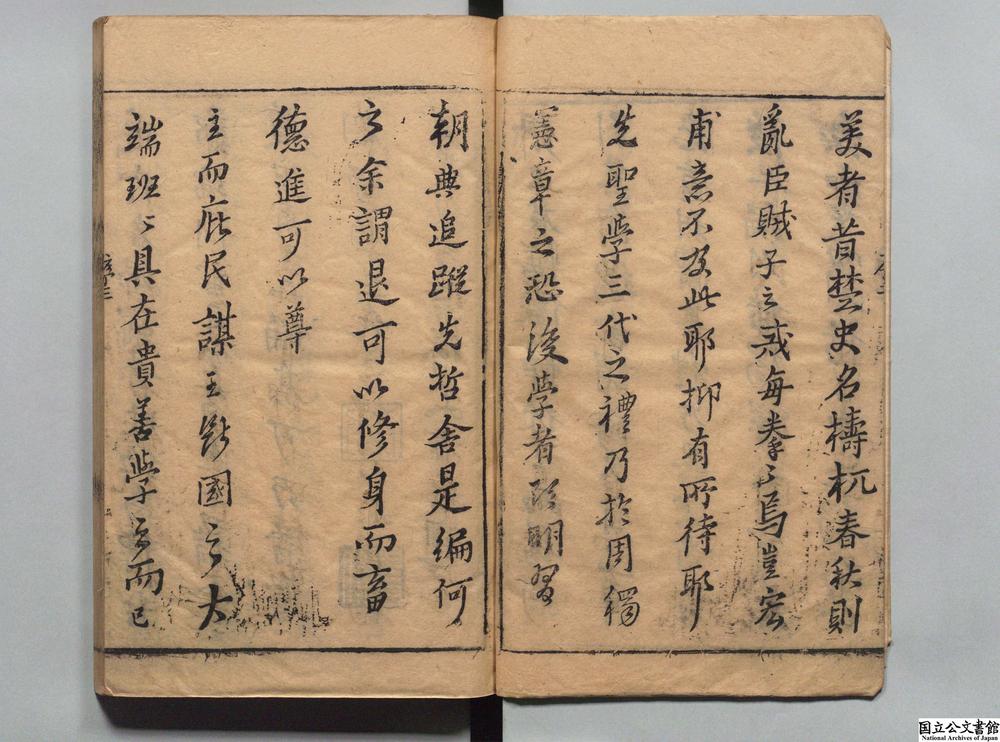 美者昔楚史名檮杌春秋則
亂臣賊子之戒每拳〻焉豈宏
甫意不及此耶抑有所待耶
先聖學三代之禮乃於周獨
憲章之恐後學者欲明習
朝典追蹤先哲舍是編何
之余謂退可以修身而畜
德進可以尊
主而庇民謀王斷國之大
端班〻具在貴善學之而已
序三
国立公文書館
National Archives of Japan